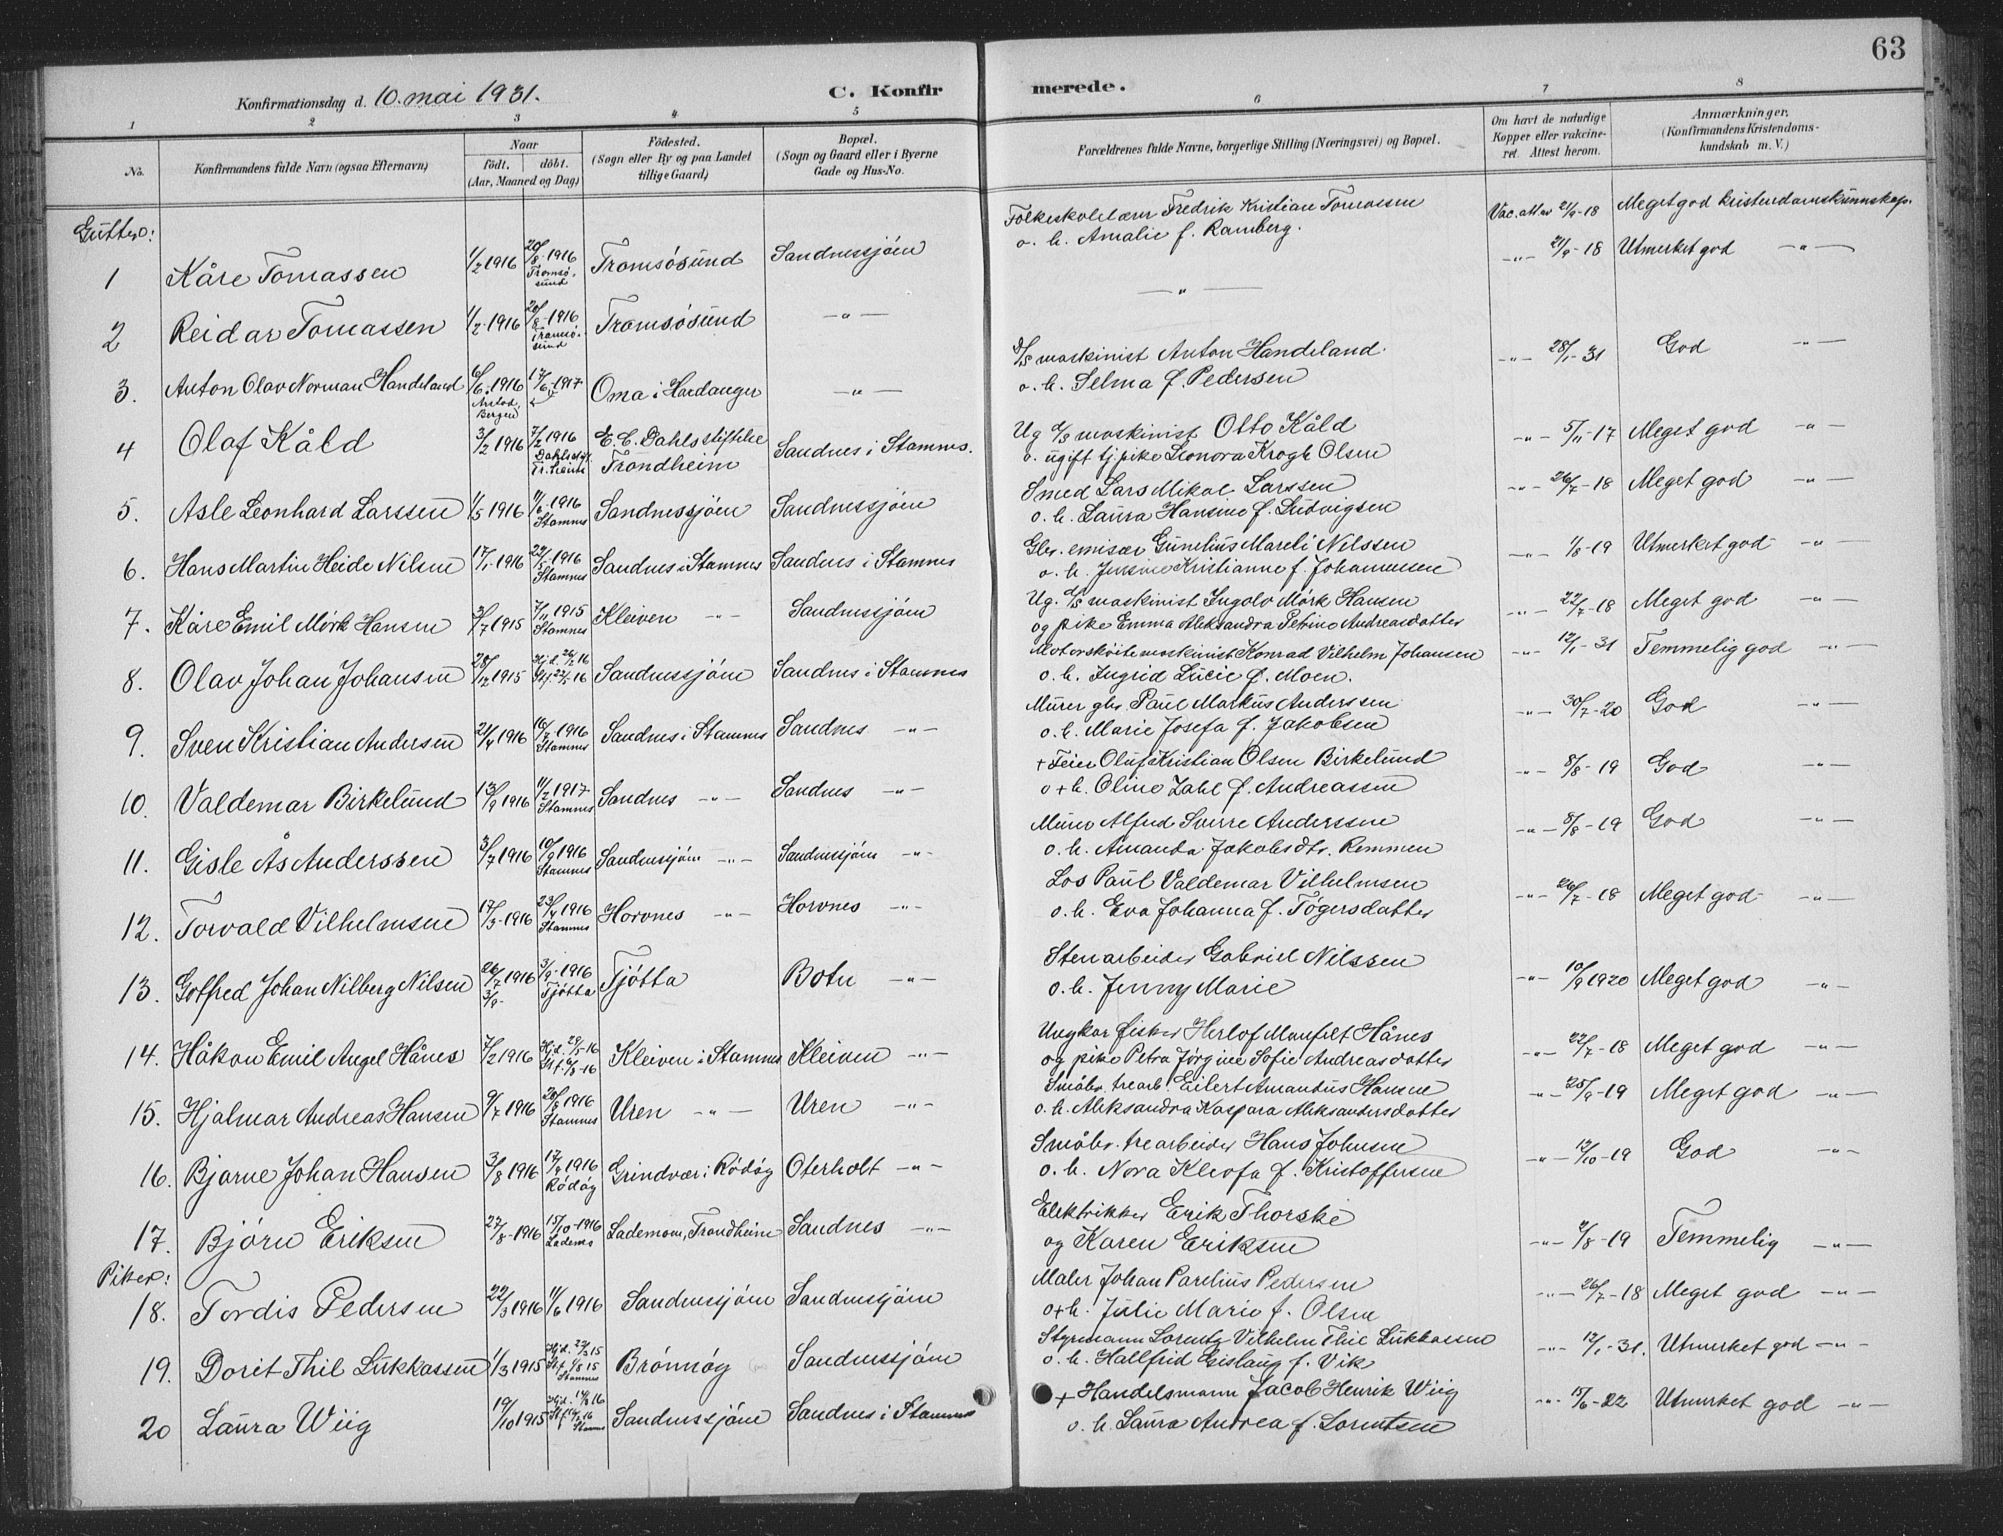 63
Konfirmationsdag d. 10. mai 1931. C. Konfirmerede.
1 2 3 4 5 6 7 8
No. Konfirmandens fulde Navn (ogsaa Efternavn) Naar født. døbt. (Aar, Maaned og Dag) Fødested. (Sogn eller By og paa Landet tillige Gaard) Bopæl. (Sogn og Gaard eller i Byerne Gade og Hus-No. Forældrenes fulde Navne, borgerlige Stilling (Næringsvei) og Bopæl. Om havt de naturlige Kopper eller vakcineret. Attest herom. Anmærkninger. (Konfirmandens Kristendomskundskab m. V.)
Gutter:
1 Kåre Tomassen 1/2 1916 20/8-1916 Tromsøsund Tromsøsund Sandnessjøen Folkeskolelærer Fredrik Kristian Tomassen o. h. Amalie f. Ramberg. Vac. att av 21/9-18 Meget god kristendomskunnskap.
2 Reidar Tomassen 1/2-1916 20/8-1916 Tromsøsund Tromsøsund -"- -"- -"- 21/9-18 Utmerket god -"-
3. Anton Olav Norman Handeland 6/6-1916 17/6-1917 Oma i Hardanger -"- d/s maskinist Anton Handeland o. h. Selma f. Pedersen -"- 28/1-31 God -"-
4 Olaf Kåld 3/2 1916 7/2 1916 E. C. Dahls stiftelse Trondheim Sandnes i Stamnes. Ug d/s maskinist Otto Kåld o. ugift tj pike Leonora Krogh Olsen -"- 5/11-17 Meget god -"-
5. Asle Leonhard Larssen 1/5 1916 11/6-1916 Stamnes Sandnessjøen Sandnessjøen Smed Lars Mikal Larssen o. h. Laura Hansine f. Ludvigsen -"- 26/7-18 Meget god -"-
6. Hans Martin Heide Nilsen 17/1-1916 22/5-1916 Stamnes Sandnes i Stamnes Sandnes i Stamnes Gbr. emisær Gunelius Mareli Nilssen o. h. Jensine Kristianne f. Johannessen -"- 1/8-19 Utmerket god -"-
7. Kåre Emil Mørk Hansen 3/7 1915 7/11 1915 Stamnes Kleiven -"- Sandnessjøen Ug. d/s maskinist Ingolv Mørk Hansen og pike Emma Aleksandra Petrine Andreasdatter -"- 22/7-18 Meget god -"-
8. Olav Johan Johansen 28/12 1915 Hjd. 26/2 16 Sandnessjøen Sandnes i Stamnes Motorskøitemaskinist Konrad Vilhelm Johansen o. h. Ingrid Lucie f. Moen. -"- 12/1-31 Temmelig god -"-
9. Sven Kristian Andersen 21/4 1916 16/7-1916 Stamnes Sandnes i Stamnes Sandnes -"- Murer gbr Paul Markus Anderssen o. h. Marie Josefa f. Jakobsen -"- 30/7-20 God -"-
10. Valdemar Birkelund 13/9 1916 11/2-1917 Stamnes Sandnes -"- Sandnes -"- + Feier Oluf Kristian Olsen Birkelund o + h. Oline Zahl f. Andreassen -"- 8/8-19 God -"-
11. Gisle Ås Anderssen 3/7 1916 10/9 1916 Stamnes Sandnessjøen -"- Sandnessjøen -"- Murer Alfred Sverre Anderssen o. h. Amanda Jakobsdtr. Remmen -"- 8/8-19 God -"-
12. Torvald Vilhelmsen 17/3-1916 23/4 1916 Stamnes Horvnes -"- Horvnes -"- Los Paul Valdemar Vilhelmsen o. h. Eva Johanna f. Tøgersdatter -"- 26/7-18 Meget god -"-
13. Gotfred Johan Nilberg Nilsen 26/7 1916 3/9- 3/9-1916 Tjøtta Tjøtta Botn -"- Stenarbeider Gabriel Nilssen o. h. Jenny Marie -"- 10/9 1920 Meget god -"-
14. Håkon Emil Angel Hånes 7/2 1916 Hjd. 29/5-16 Kleiven i Stamnes Kleiven -"- Ungkar fisker Herlof Manfelt Hånes og pike Petra Jørgine Sofie Andreasdatter -"- 22/7-18 Meget god -"-
15. Hjalmar Andreas Hansen 9/7 1916 20/8 1916 Stamnes Uren -"- Uren -"- Småbr. trearb. Eilert Amandus Hansen o. h. Aleksandra Kaspara Aleksandersdatter -"- 25/9-19 Meget god -"-
16. Bjarne Johan Hansen 3/8 1916 17/9 1916 Rødøy Grindvær i Rødøy Oterholt -"- Småbr. trearbeider Hans Johnsen o. h. Nora Kleofa f. Kristoffersen -"- 12/10-19 God -"-
17. Bjørn Eriksen 27/8-1916 15/10-1916 Lademoen, Trondheim Sandnes -"- Elektrikker Erik Thorske og Karen Eriksen -"- 9/8-19 Temmelig -"-
Piker:
18. Tordis Pedersen 22/3 1916 11/6 1916 Sandnessjøen Sandnessjøen Maler Johan Parelius Pedersen o + h. Julie Marie f. Olsen -"- 26/7-18 Meget god -"-
19. Dorit Thil Lukkassen 1/3 1915 Stamnes Brønnøy Sandnessjøen Styrmann Lorentz Vilhelm Thil Lukkassen o. h. Hallfrid Gislaug f. Vik -"- 12/1-31. Utmerket god -"-
20 Laura Wiig 19/10 1915 Stamnes Sandnessjøen Sandnes i Stamnes + Handelsmann Jacob Henrik Wiig o. h. Laura Andrea f. Lorentsen -"- 15/6-22 Utmerket god -"-